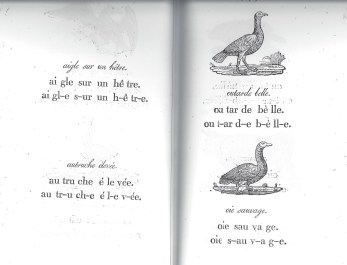 aigle sur un hêtre.
ai gle sur un hê tre.
ai gl-e s-ur un h-ê tr-e.
autruche élevée.
au tru che é le vée.
au tr-u ch-e é l-e v-ée.
outarde belle.
ou tar de bè lle.
ou t-ar d-e b-è ll-e.
oie sauvage.
oie sau va ge.
oie s-au v-a g-e.